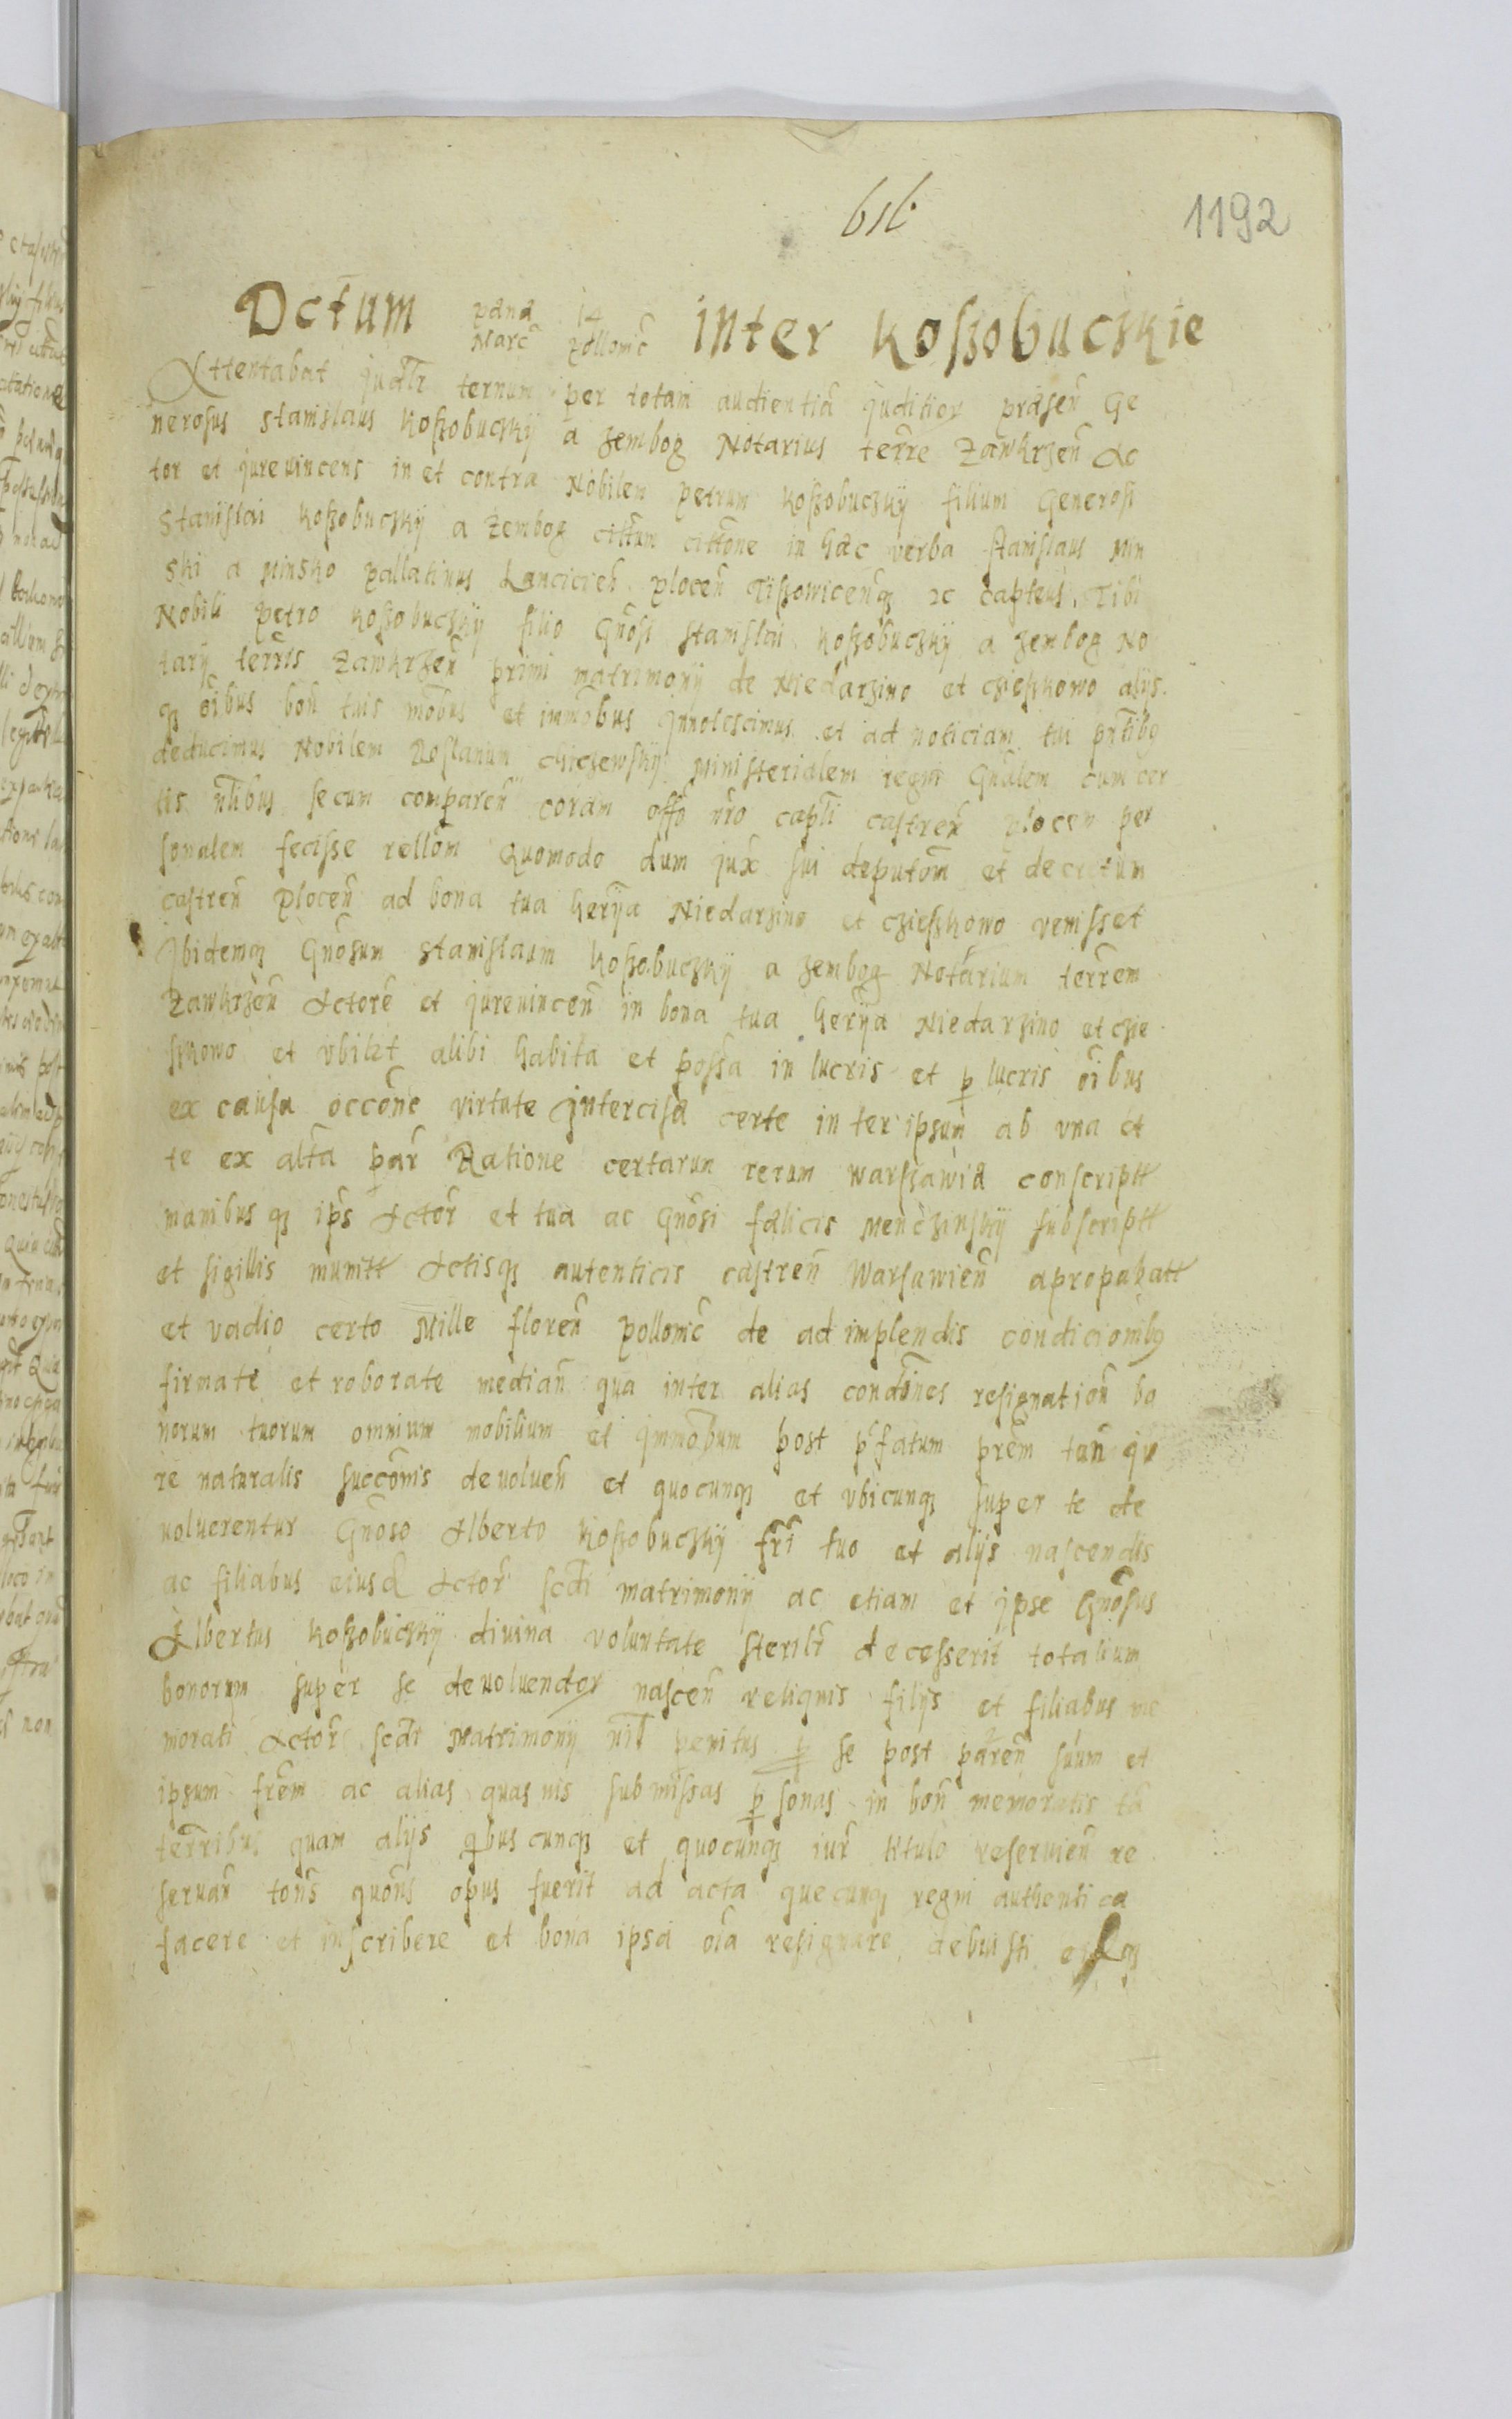 616
1192
Actum pena 14 Marc pollonic inter Koßobuczkie
Attentabat judlr ternum per totam audientia juditior præsen̄ Ge
nerosus Stanislaus Koßobuczkÿ a Zembog Notarius terre Zawkrzen̄ Ac
tor et jurevincens in et contra Nobilem Petrum Koßobuczkÿ filium Generosi
Stanislai Koßobuczkÿ a Zembog cittum cittone in hæc verba Stanislaus Min
ski a Minsko pallatinus Lancicien̄ plocen̄ Tißowicenq ac capteus. Tibi
Nobili petro Koßobuczkÿ filio Gnosi Stanislai Koßobuczkÿ a Zembog No
tarij terris Zawkrzen̄ primi matrimonij de Niedarzino et Czieskowo alijs
q oibus bon̄ tuis mobus et immobus Innotescimus et ad noticiam tui prtibq
deducimus Nobilem Roslanum Chiczewskÿ Ministerialem regni Gnalem cum cer
tis nlibus secum comparen̄ coram offo nro capli castren̄ plocen̄ per
sonalem fecisse rellom Quomodo dum jux sui deputom et decretum
castren̄ plocen̄ ad bona tua herÿa Niedarzino et Czieskowo venisset
Ibidemq Gnosum Stanislaum Koßobuczkÿ a Zembog Notarium terrem
Zawkrzen̄ Actore et jurevincen̄ in bona tua herÿa Niedarzino et Czie
skowo et vbilet alibi habita et possa in lucris et p lucris oibus
ex causa occone virtute Intercisa certe inter ipsum ab vna et
te ex altra par Ratione certarum rerum Warszawiæ conscriptt
manibus q ips Actor et tua ac Gnosi fælicis Menczinskÿ subscriptt
et sigillis munitt Actisq autenticis castren̄ Warsawien̄ apropabatt
et vadio certo Mille floren̄ pollonic de adimplendis condicionibq
firmate et roborate median̄ qua inter alias condones resignation̄ bo
norum tuorum omnium mobilium et immobum post pfatum prem tun̄ ju
re naturalis succonis devoluen̄ et quocunq et vbicunq super te de
voluerentur Gnoso Alberto Koßobuczkÿ fri tuo et alijs nascendis
ac filiabus eiusd Actor scdi matrimonij ac etiam et ipse Gnosus
Albertus Koßobuczkÿ divina voluntate sterili decesserit totalium
bonorum super se devoluendor nascen̄ reliquis filijs et filiabus me
morati Actor scdi Matrimonij nil penitus p se post paren̄ suum et
ipsum frem ac alias quas uis submissas p sonas in bon̄ memoratis ta
terribus quam alijs qbus cunq et quocunq iur titulo reseruien̄ re
seruar tons quons opus fuerit ad acta quecunq regni authentica
facere et inscribere et bona ipsa oia resignare debuisti